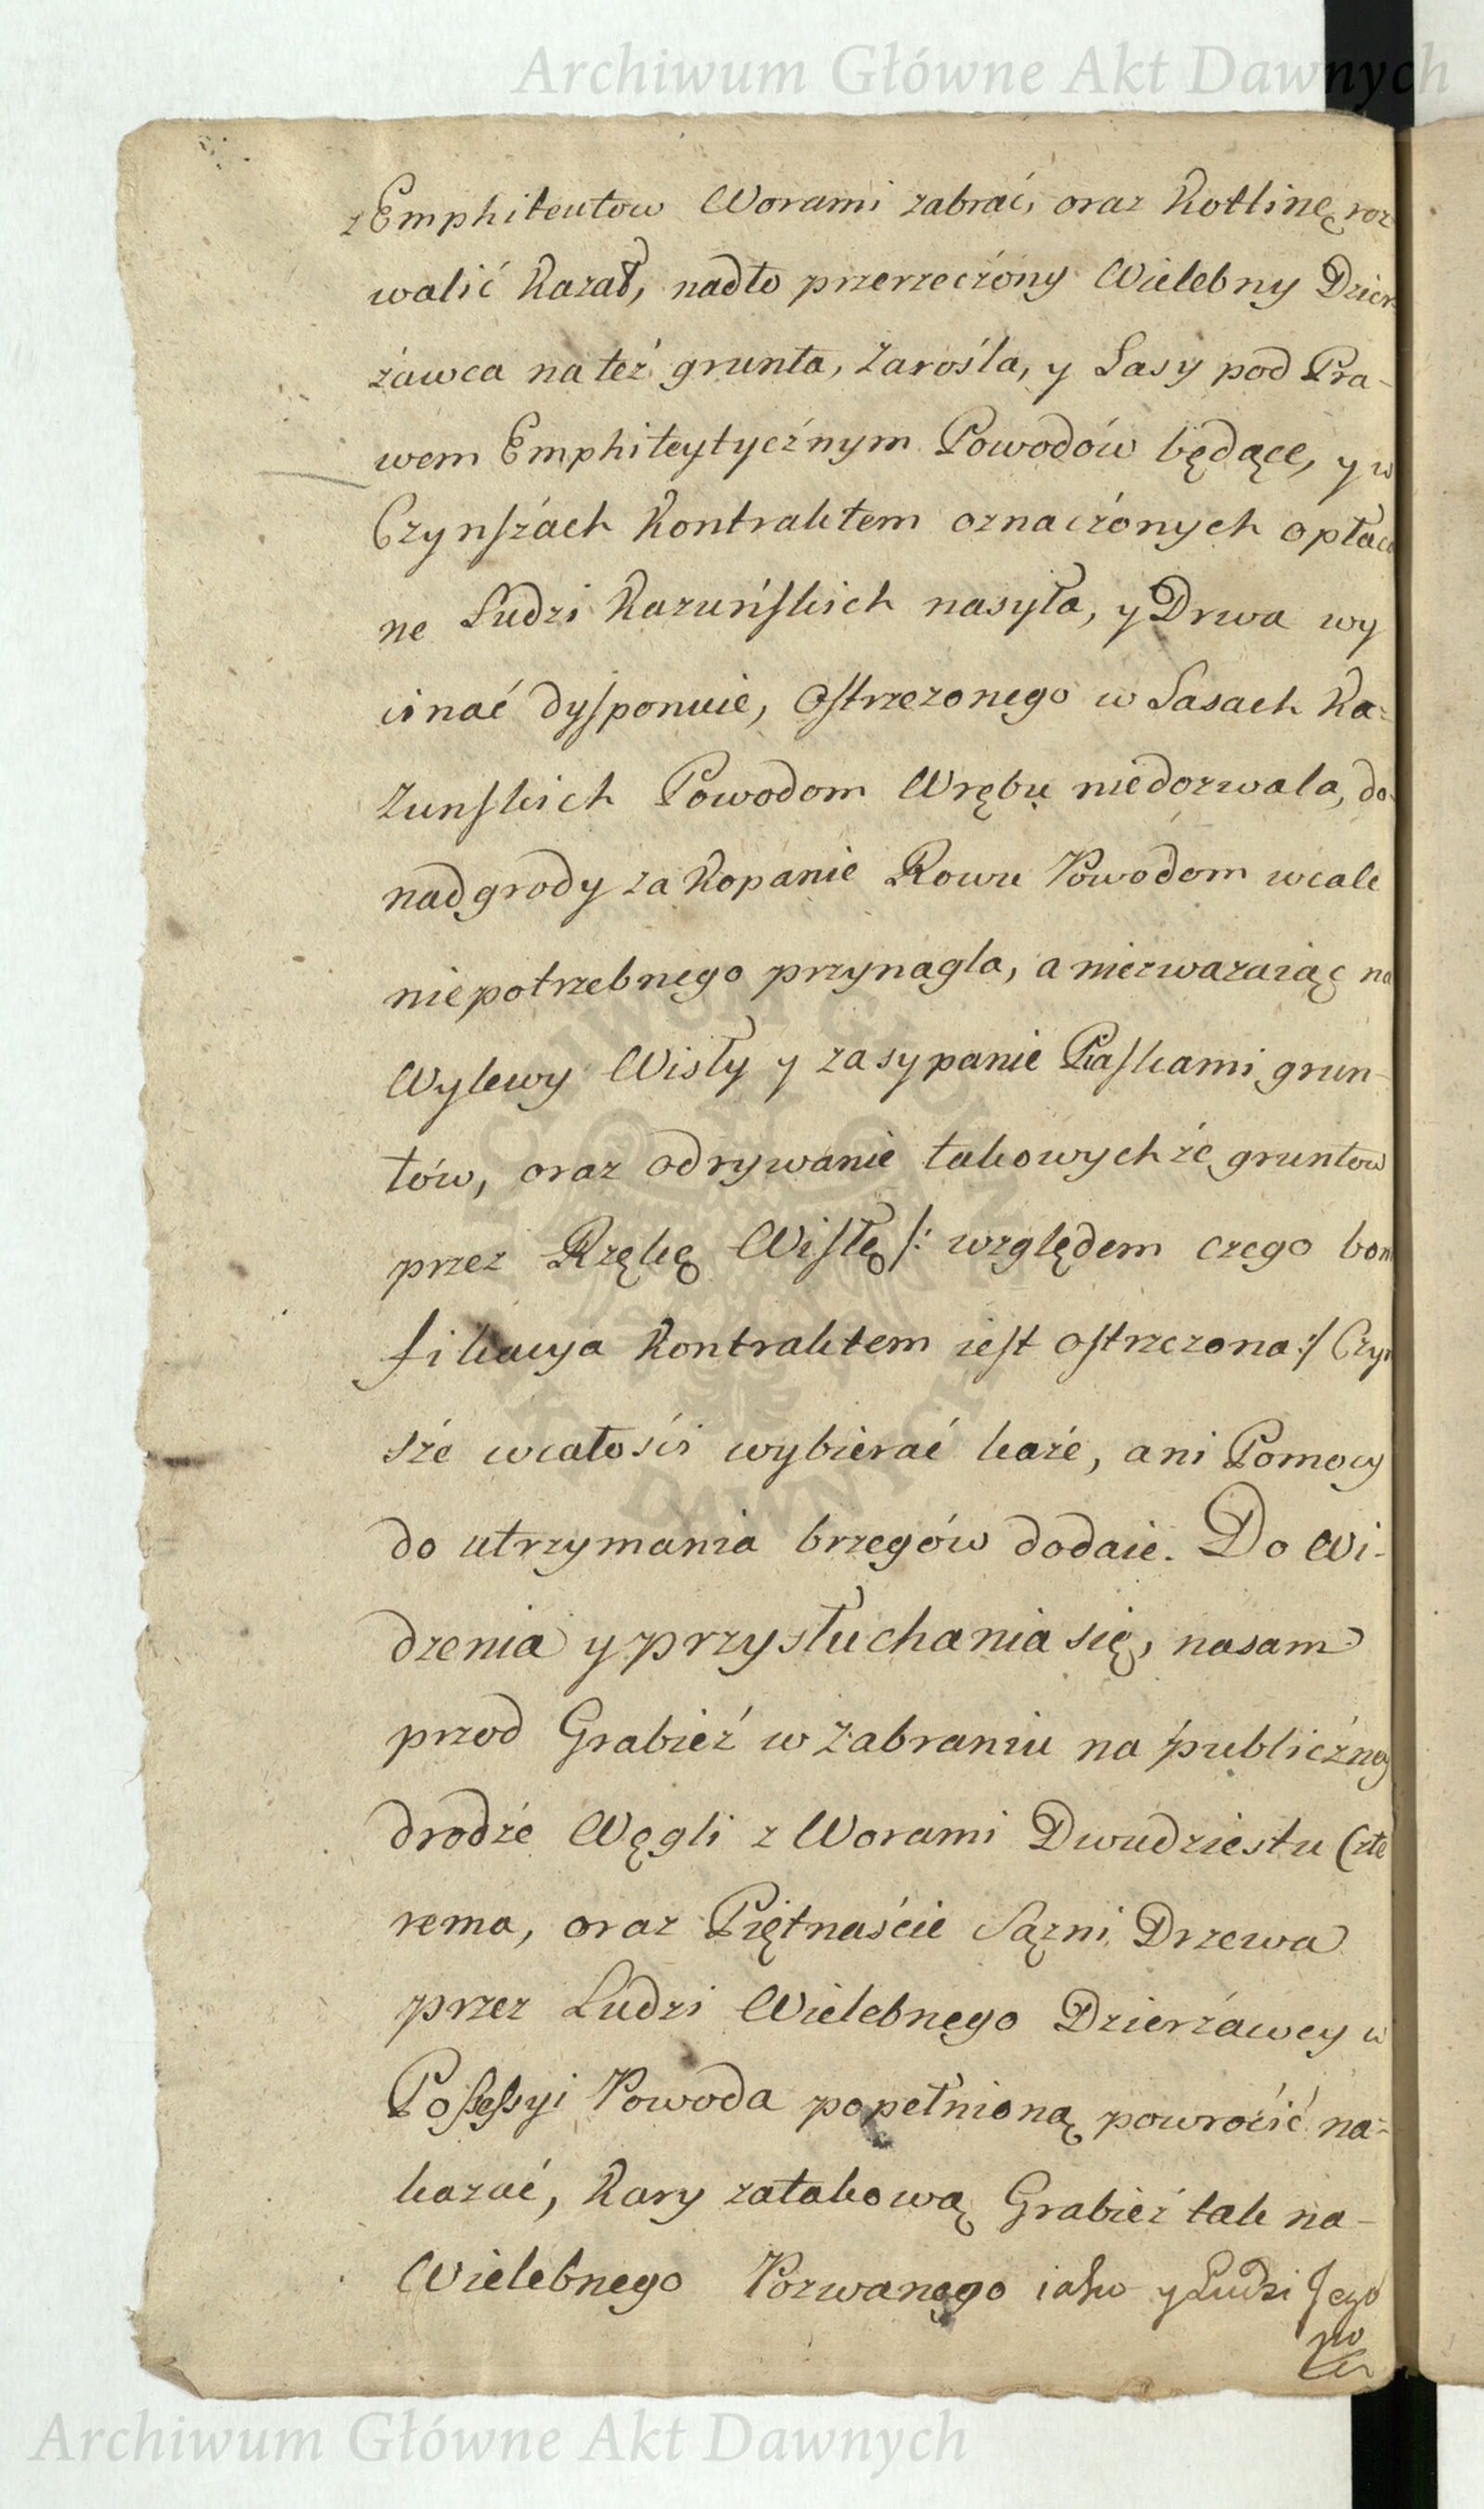 Archiwum Główne Akt Dawnych
z Emphiteutow Worami zabrać, oraz Kotlinę roz
walić Kazał, nadto przerzeczony Wielebny Dzier
żawca na też grunta, Zarośla, y Lasy pod Pra-
wem Emphiteytycznym Powodów będące, y w
Czynszach Kontraktem oznaczonych opłaco
ne Ludzi Kazuńskich nasyła, y Drwa wy
cinać dysponuie, Ostrzezonego w Lasach Ka=
zunskich Powodom Wrębu niedozwala, do
nadgrody za Kopanie Rowu Powodom wcale
niepotrzebnego przynagla, a niezwazaiąc na
Wylewy Wisły y zasypanie Piaskami grun-
tów, oraz odrywanie takowychże gruntow
przez Rzękę Wisłę /: względem czego bon
fikacya Kontraktem iest ostrzezona :/ Czyn
sże wcałości wybierać każe, ani Pomocy
do utrzymania brzegów dodaie. Do Wi-
dzenia y przysłuchania się, nasam
przod Grabież w Zabraniu na publicżney
drodże Węgli z Worami Dwudziestu Czte
rema, oraz Piętnaście Sązni Drzewa
przez Ludzi Wielebnego Dzierżawcy w
Possessyi Powoda popełnioną powrócić na=
kazać, Kary zatakową Grabież tak na-
Wielebnego Pozwanego iako y Ludzi Jego
Archiwum Główne Akt Dawnych